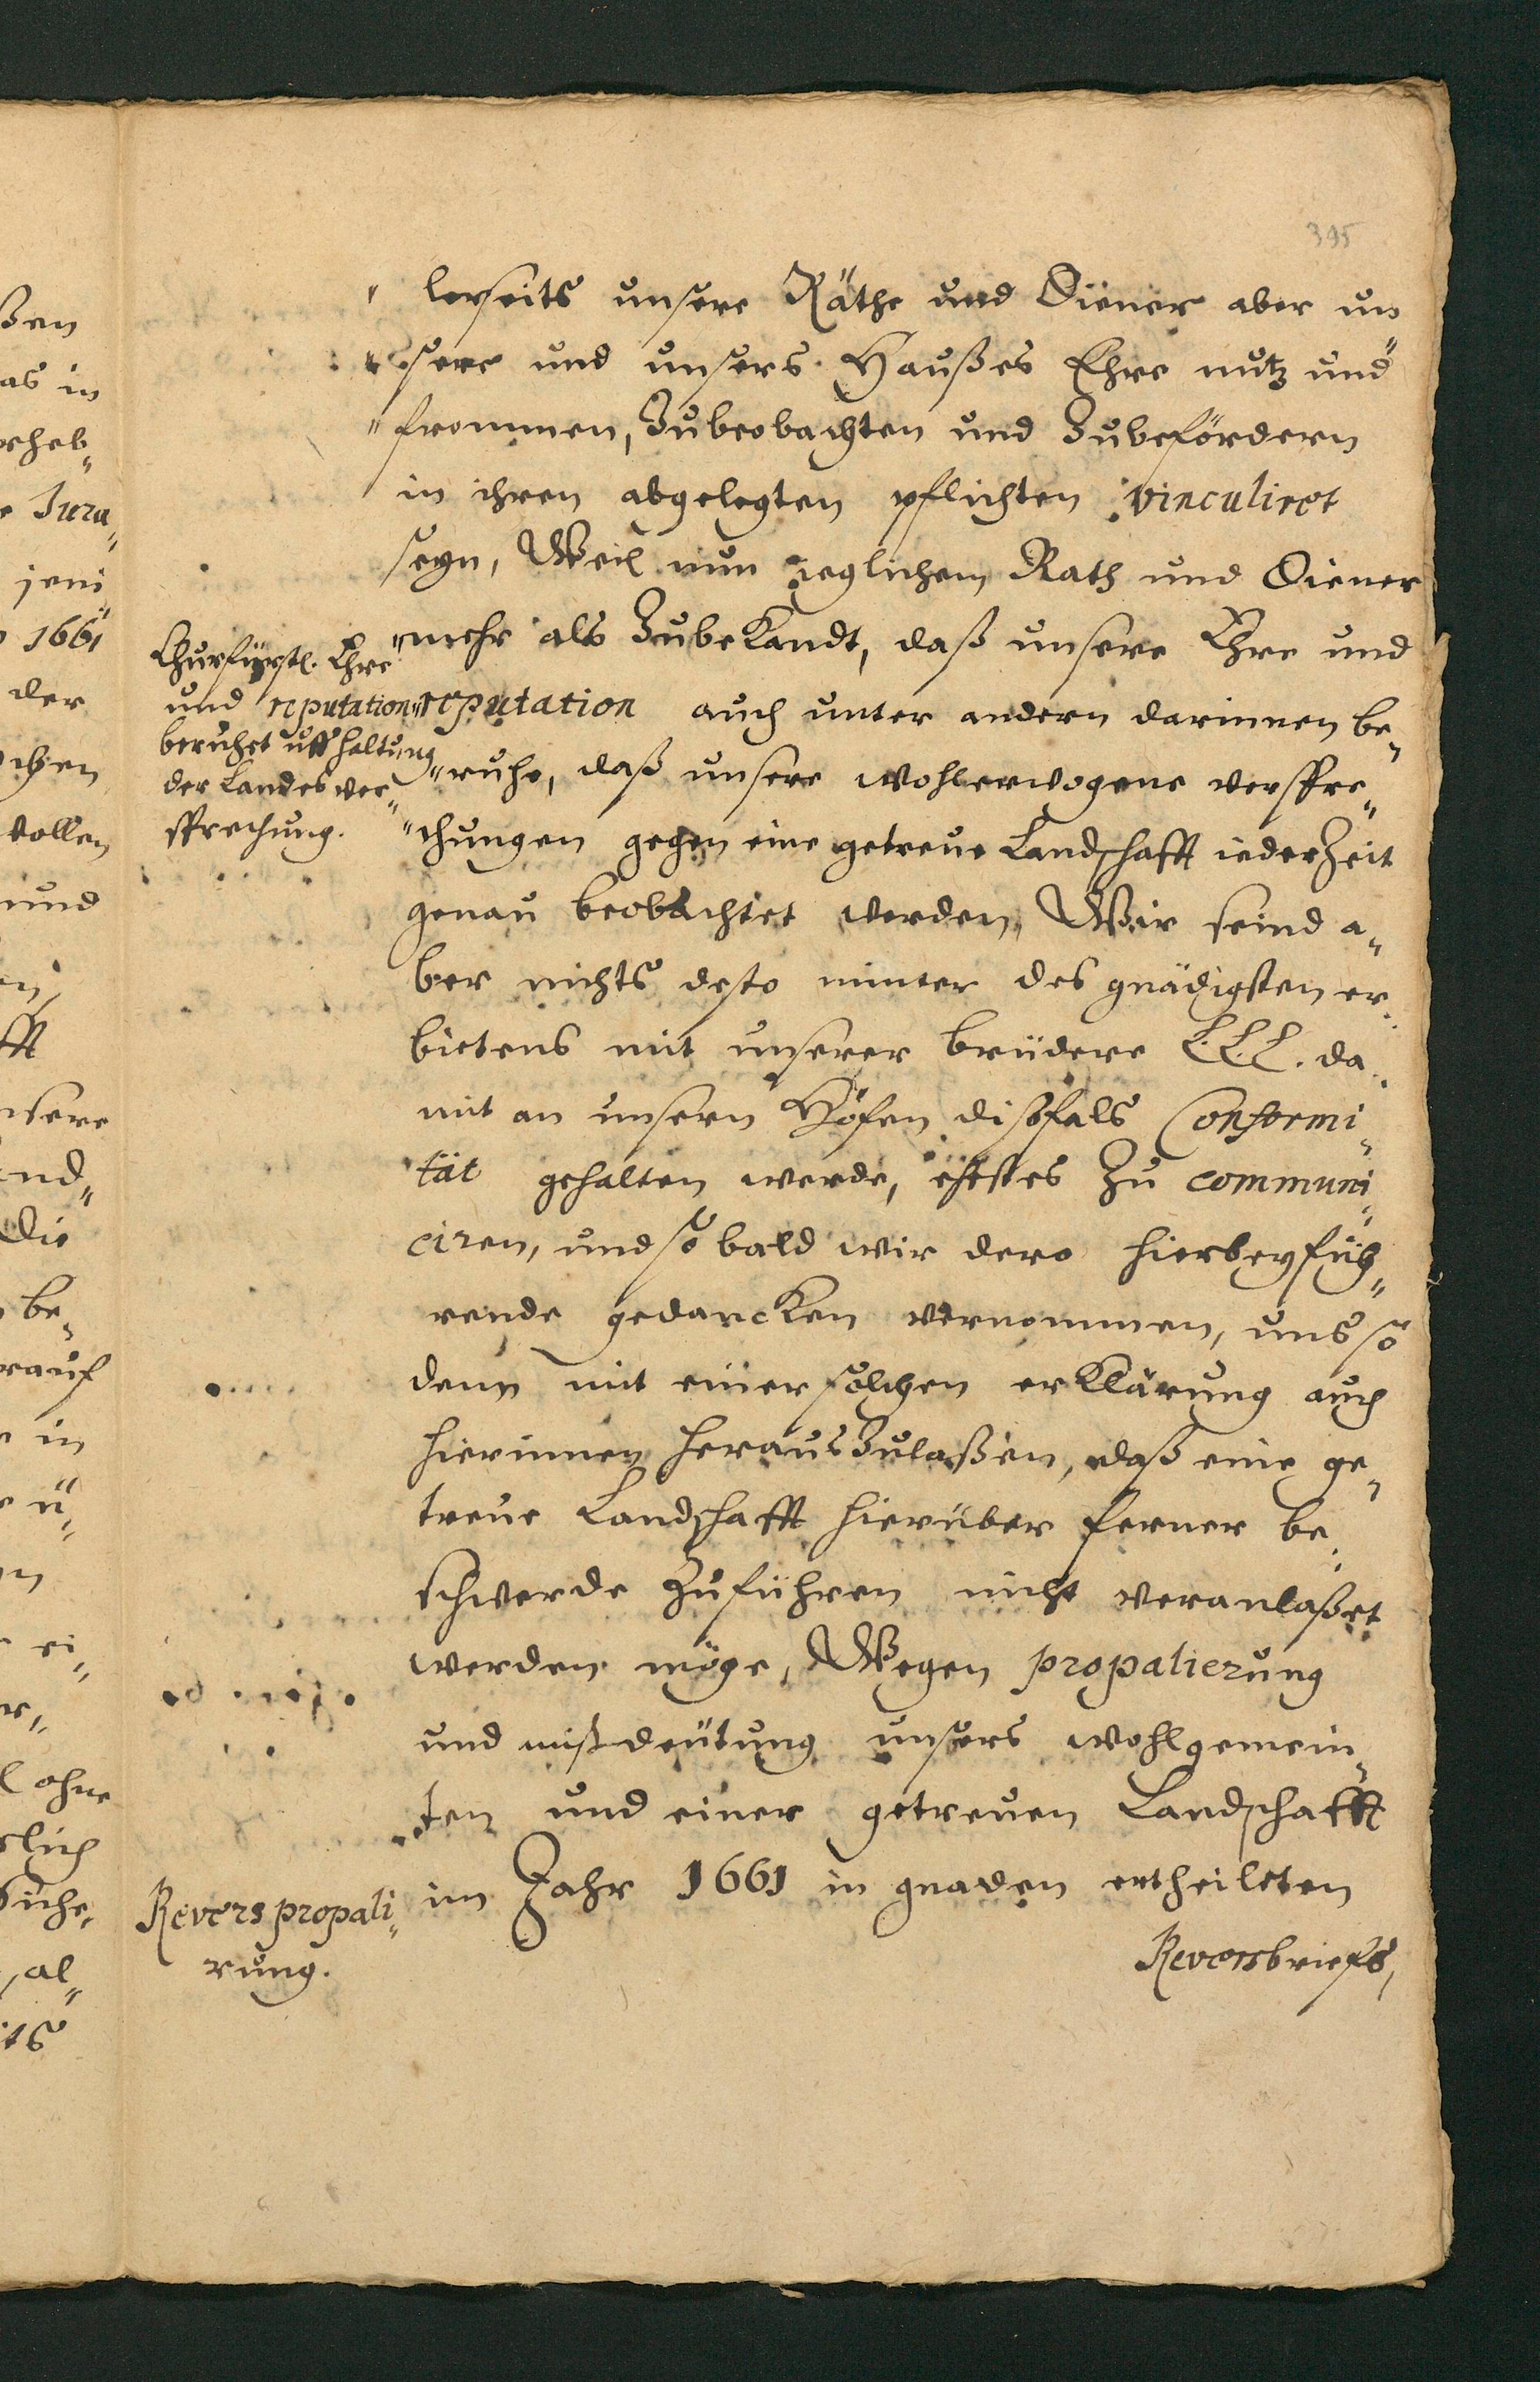 395
lerseits unsere Räthe und Diener aber un„
sere und unsers Haußes Ehre nutz und
frommen, Zubeobachten und Zubefördern
in ihren abgelegten pflichten vinculiret
seyn, Weil nun ieglichem Rath und Diener
mehr als Zubekandt, daß unsere Ehre und
reputation auch unter andern darinnen be„
ruhe, daß unsere wohlerwogene verspre„
chungen gegen eine getreue Landschafft iederZeit
genau beobachtet werden, Wir seind a„
ber nichts desto minter des gnädigsten er„
bietens mit unserer brüdere L.L.L. da„
mit an unsern Höfen dißfals Conformi„
tät gehalten werde, ehestes Zu communi„
ciren, und so bald wir dero hierbeyfüh„
rende gedancken vernommen, uns so
denn mit einer solchen erklärung auch
hierinnen herausZulaßen, daß eine ge„
treue Landschafft hierüber ferner be„
schwerde Zuführen nicht veranlaßet
werden möge, Wegen propalierung
und mißdeütung unsers wohlgemein„
ten und einer getreuen Landschafft
im Jahr 1661 in gnaden ertheileten
Reversbriefs,
Churfürstl. Ehre
und reputation
beruhet uff haltung
der Landes ver„
sprechung.
Revers propali„
rung.
ßen
as in
eheb„
Jura„
jeni„
1661
der
chen
wollen
und
en,
fft
nsere
and„
Die
be„
rauf
in
ü„
en
ei„
er„
ohne
lich
siche„
, al„
its